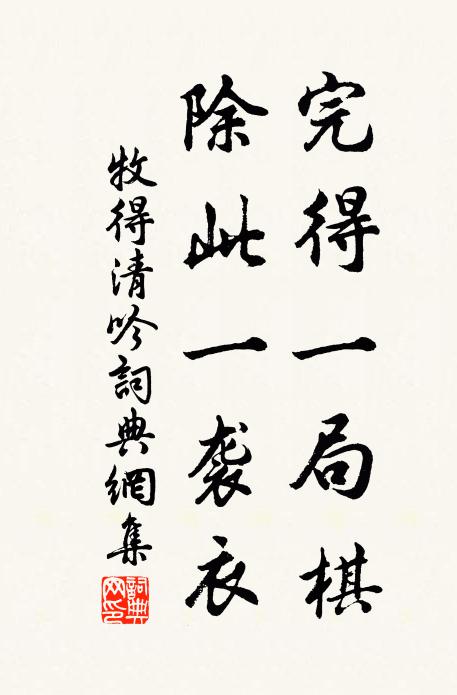 完得一局棋
除此一袭衣
牧得清吟詞典網集
詞典网印